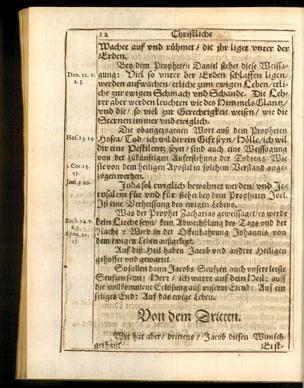 12 Christliche
Wachet auf vnd rühmet / die jhr liget vnter der
Erden.
Bey dem Propheten Daniel stehet diese Weissa-
Dan. 12. v.
2. 3.
gung: Viel so vnter der Erden schlaffen ligen /
werden aufwachen / etliche zum ewigen Leben / etli-
che zur ewigen Schmach vnd Schande. Die Leh-
rer aber werden leuchten wie des Himmels Glantz /
vnd die / so viel zur Gerechtigkeit weisen / wie die
Sternen immer vnd ewiglich.
Die obangezogenen Wort auß dem Propheten
Hos. 13. 14.
Hosea / Tod / ich wil dir ein Gift seyn / Hölle / ich wil
dir eine Pestilentz seyn / sind auch eine Weissagung
von der zukünftigen Auferstehung der Todten. Wie
1. Cor. 15.
55.
sie von dem heiligen Apostel in solchem Verstand ange-
zogen werden.
Joel. 3. 20.
Juda sol ewiglich bewohnet werden / vnd Je-
rusalem für vnd für / stehet bey dem Propheten Joel.
Ist eine Verheissung des ewigen Lebens.
Was der Prophet Zacharias geweissaget / es werde
Zach. 14. v.
6. 7.
kein Liecht seyn / kein Abwechslung des Tags vnd der
Nacht: Wird in der Offenbahrung Johannis von
dem ewigen Leben außgelegt.
Auf diß Heil haben Jacob vnd andere Heiligen
gehoffet vnd gewartet.
So sollen dann Jacobs Seufzen auch vnsere letzte
Seufzen seyn: Herr / ich warte auf dein Heil: auff
die vollkommene Erlösung auß vnserm Elend: Auf ein
seliges End: Auf das ewige Leben.
Von dem Dritten.
Wie hat aber / drittens / Jacob diesen Wunsch
gethan?
Erst-